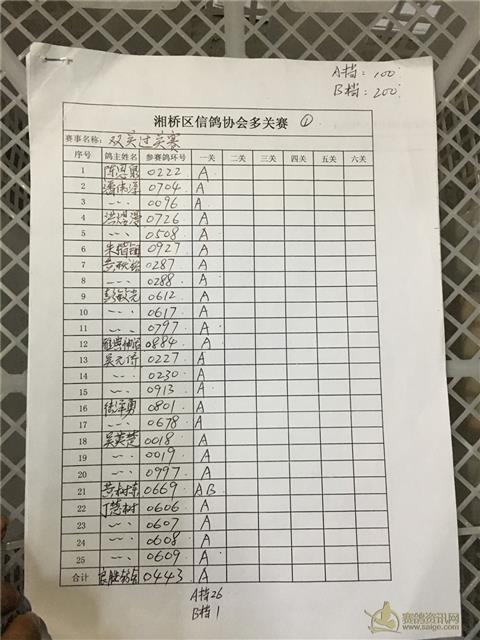 A档：100
B档：200
湘桥区信鸽协会多关赛 ①
赛事名称：双关过关赛
序号 鸽主姓名 参赛鸽环号 一关 二关 三关 四关 五关 六关
1 陈恩泉 0222 A
2 0704 A
3 〃 0096 A
4 0726 A
5 〃 0508 A
6 0927 A
7 0287 A
8 〃 0288 A
9 彭敏光 0612 A
10 〃 0617 A
11 〃 0797 A
12 0884 A
13 吴元济 0227 A
14 〃 0230 A
15 〃 0913 A
16 0801 A
17 〃 0678 A
18 吴英楚 0018 A
19 〃 0019 A
20 〃 0997 A
21 黄树东 0669 AB
22 丁楚树 0606 A
23 〃 0607 A
24 〃 0608 A
25 〃 0609 A
合计 0443 A
A档26
B档1
赛鸽资讯网
www.saige.com